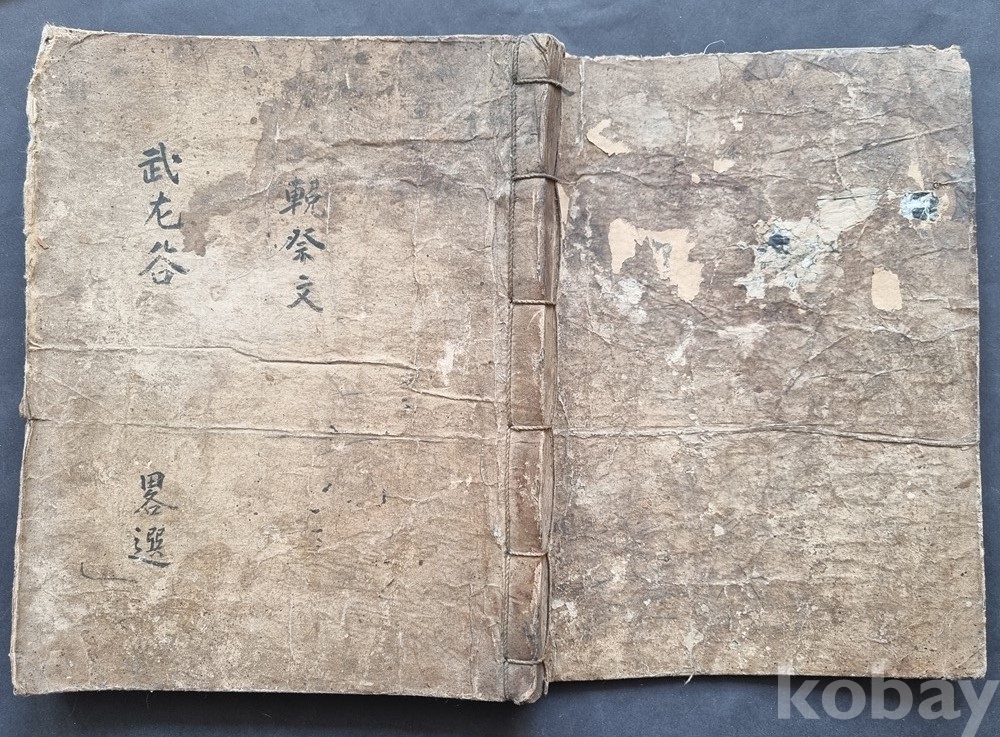 輓祭文
武谷
畧選
kobay